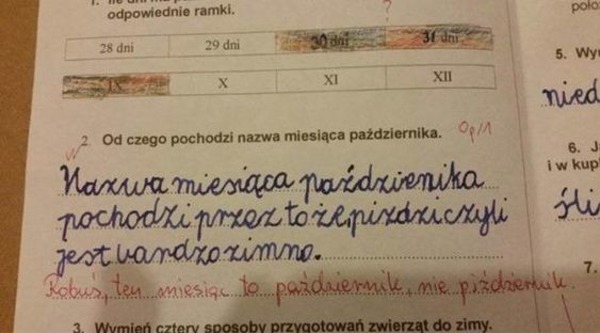 odpowiednie ramki.
28 dni 29 dni 30 dni 31 dni
IX X XI XII
2. Od czego pochodzi nazwa miesiąca października. Op/1
Nazwa miesiąca października
pochodzi przez to że pizdzi czyli
jest bardzo zimno.
Kobuś, ten miesiąc to październik, nie piździernik.
3. Wymień cztery sposoby przygotowań zwierząt do zimy.
5. Wy
nied
6. J
i w kup
śli
7.